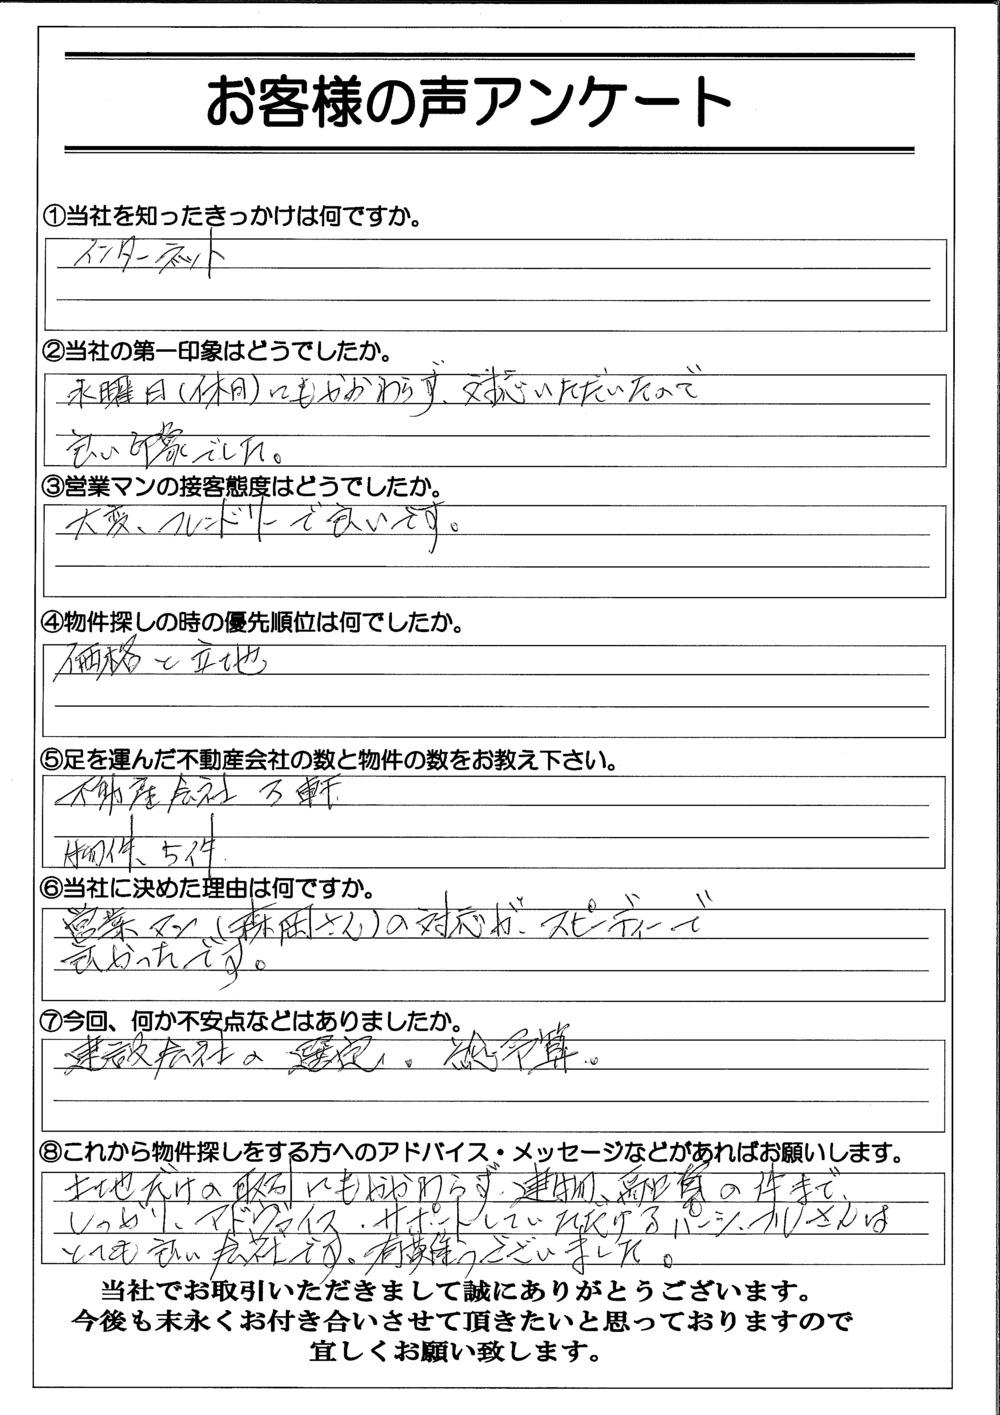 お客様の声アンケート
①当社を知ったきっかけは何ですか。
インターネット
②当社の第一印象はどうでしたか。
水曜日(休日)にもかかわらず、対応いただいたので
良い印象でした。
③営業マンの接客態度はどうでしたか。
大変、フレンドリーで良いです。
④物件探しの時の優先順位は何でしたか。
価格と立地
⑤足を運んだ不動産会社の数と物件の数をお教え下さい。
不動産会社 3軒
物件、5件
⑥当社に決めた理由は何ですか。
営業マン(森岡さん)の対応が、スピーディーで
良かったです。
⑦今回、何か不安点などはありましたか。
建設会社の選定。総予算。
⑧これから物件探しをする方へのアドバイス・メッセージなどがあればお願いします。
土地だけの取引にもかかわらず、建物、融資の件まで、
しっかり、アドヴァイス、サポートしていただける
とても良い会社です。有難うございました。
当社でお取引いただきまして誠にありがとうございます。
今後も末永くお付き合いさせて頂きたいと思っておりますので
宜しくお願い致します。